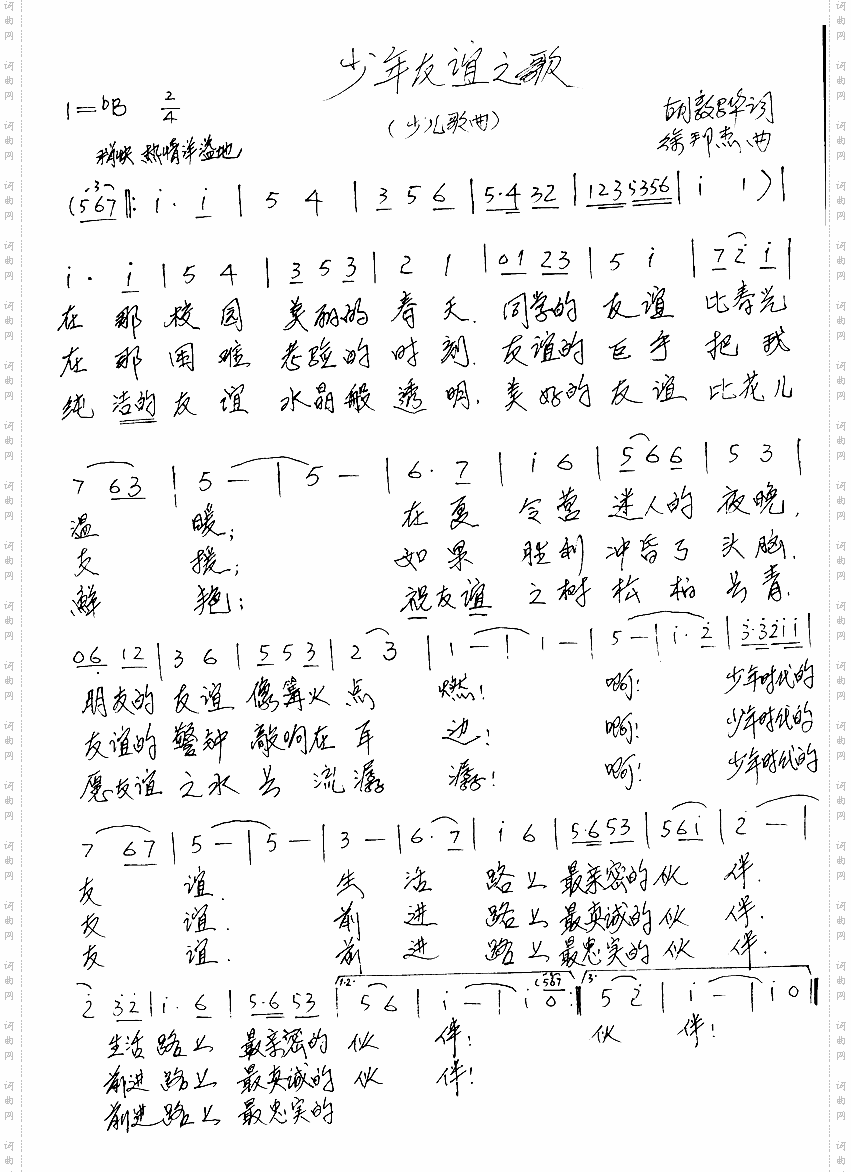 少年友谊之歌
1=bB 2/4
(少儿歌曲)
胡敦骅词
徐邦杰曲
稍快 热情洋溢地
(567 ‖: i· i | 5 4 | 3 5 6 | 5·4 32 | 123 5356 | i 1 ) |
i· i | 5 4 | 3 5 3 | 2 1 | 01 23 | 5 i | 7 2 i |
在那校园 美丽的春天. 同学的友谊 比春光
在那困难 考验的时刻. 友谊的巨手 把我
纯洁的友谊 水晶般透明. 美好的友谊 比花儿
7 63 | 5 — | 5 — | 6· 7 | i 6 | 5 6 6 | 5 3 |
温暖; 在夏令营 迷人的夜晚,
支援; 如果胜利 冲昏了头脑.
鲜艳; 祝友谊之树 松柏共青.
06 12 | 3 6 | 5 5 3 | 2 3 | 1 — | 1 — | 5 — | i· 2 | 3·3 2 i i |
朋友的友谊 像篝火点燃! 啊! 少年时代的
友谊的警钟 敲响在耳边! 啊! 少年时代的
愿友谊之水 共流潺潺! 啊! 少年时代的
7 67 | 5 — | 5 — | 3 — | 6· 7 | i 6 | 5·6 53 | 5 6 i | 2 — |
友谊. 生活路上 最亲密的伙伴.
友谊. 前进路上 最真诚的伙伴.
友谊. 前进路上 最忠实的伙伴.
2 32 | i· 6 | 5·6 53 | 1.2. 5 6 | i — | i 0 (567 :‖ 3. 5 2 | i — | i 0 ‖
生活路上 最亲密的伙伴! 伙伴!
前进路上 最真诚的伙伴!
前进路上 最忠实的
词曲网